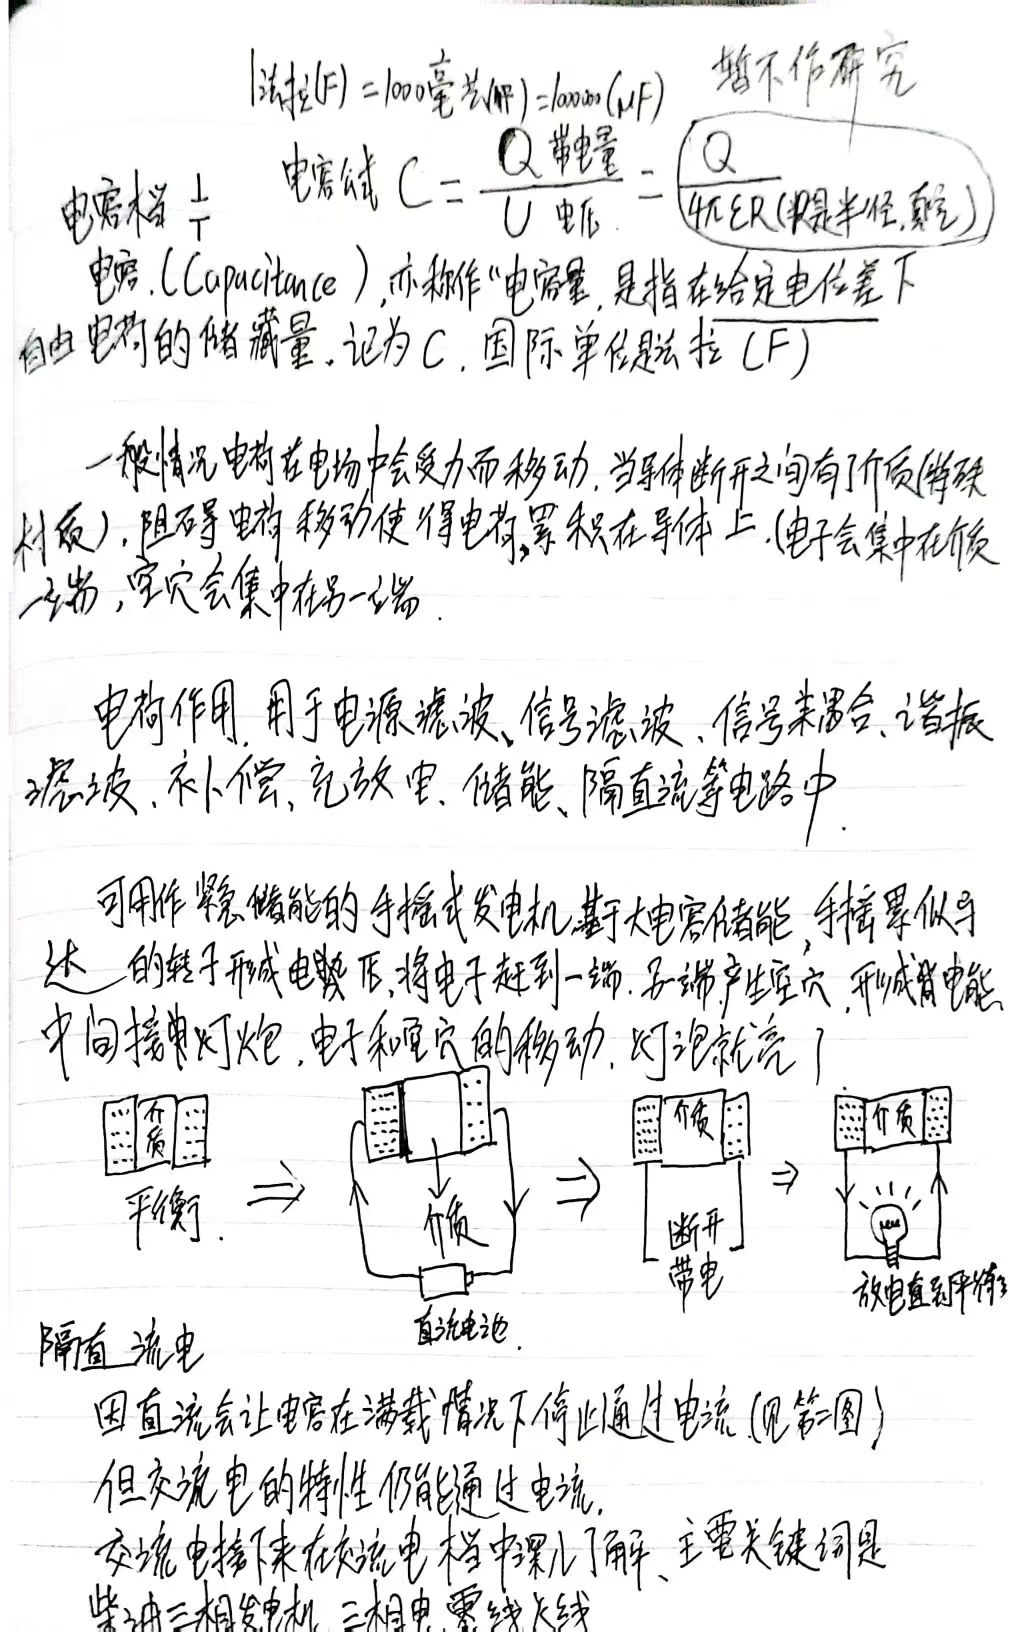 1法拉(F)=1000毫法(mF)=1000000(μF) 暂不作研究
电容档 电容公式 C = Q 带电量 / U 电压 = Q / 4πεR(R是半径,真空)
电容.(Capacitance),亦称作“电容量,是指在给定电位差下
自由电荷的储藏量.记为C.国际单位是法拉(F)
一般情况电荷在电场中会受力而移动.当导体断开之间有了介质(特殊
材质).阻碍电荷移动使得电荷累积在导体上.(电子会集中在介质
一端,空穴会集中在另一端.
电荷作用.用于电源滤波、信号滤波、信号耦合、谐振
滤波、补偿、充放电、储能、隔直流等电路中.
可用作紧急储能的手摇式发电机基于大电容储能,手摇累似马
达 的转子形成电势压,将电子赶到一端.另一端产生空穴.形成有电能
中间接单灯炮,电子和空穴的移动,灯泡就亮了
介质 介质 介质
平衡. 介质 断开
带电 放电直到平衡
直流电池.
隔直流电
因直流会让电容在满载情况下停止通过电流.(见第二图)
但交流电的特性仍能通过电流.
交流电接下来在交流电档中深入了解、主要关键词是
柴油三相发电机 三相电 零线火线